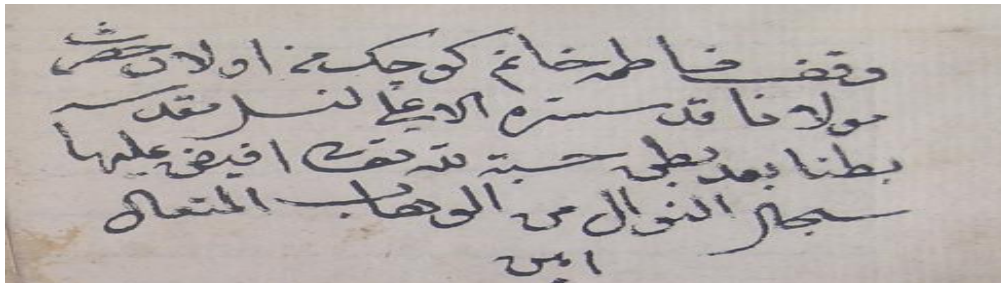 وقف فاطمه خانم كوچك من اولاد حضرت
مولانا قدس سره الاعلى لنسل مقدسه
بطنا بعد بطن حسبة لله تعالى افيض عليها
سجال النوال من الوهاب المتعال
امين